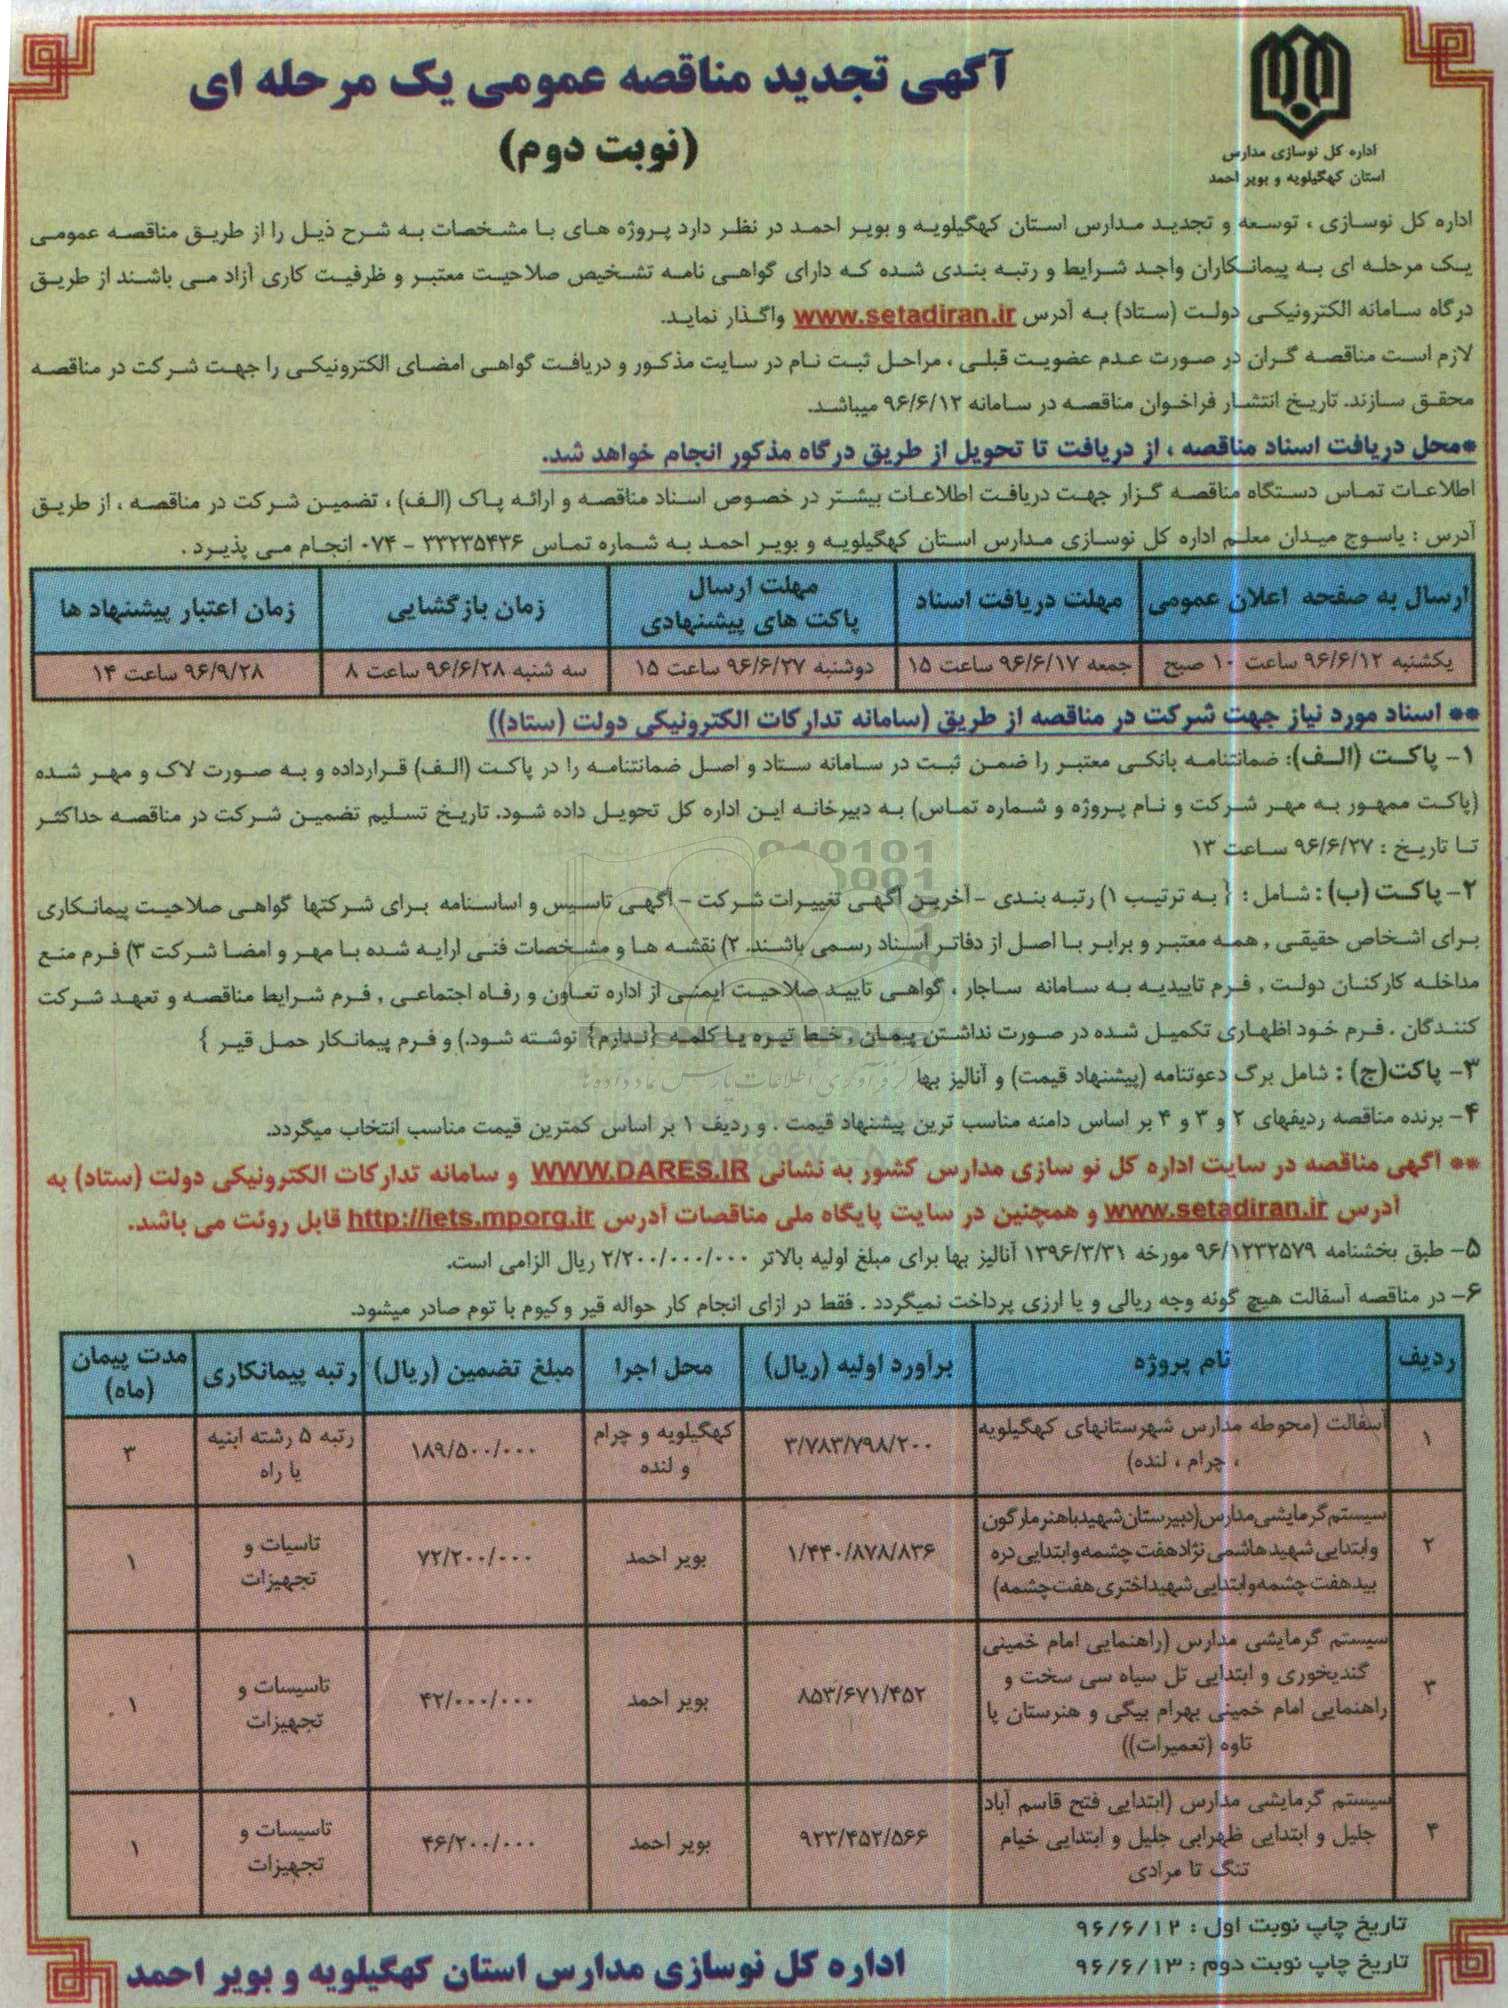 آگهی تجدید مناقصه عمومی یک مرحله ای
(نوبت دوم)
اداره کل نوسازی مدارس
استان کهگیلویه و بویر احمد
اداره کل نوسازی ، توسعه و تجدید مدارس استان کهگیلویه و بویر احمد در نظر دارد پروژه های با مشخصات به شرح ذیل را از طریق مناقصه عمومی
یک مرحله ای به پیمانکاران واجد شرایط و رتبه بندی شده که دارای گواهی نامه تشخیص صلاحیت معتبر و ظرفیت کاری آزاد می باشند از طریق
درگاه سامانه الکترونیکی دولت (ستاد) به آدرس www.setadiran.ir واگذار نماید.
لازم است مناقصه گران در صورت عدم عضویت قبلی ، مراحل ثبت نام در سایت مذکور و دریافت گواهی امضای الکترونیکی را جهت شرکت در مناقصه
محقق سازند. تاریخ انتشار فراخوان مناقصه در سامانه ۹۶/۶/۱۲ میباشد.
*محل دریافت اسناد مناقصه ، از دریافت تا تحویل از طریق درگاه مذکور انجام خواهد شد.
اطلاعات تماس دستگاه مناقصه گزار جهت دریافت اطلاعات بیشتر در خصوص اسناد مناقصه و ارائه پاک (الف) ، تضمین شرکت در مناقصه ، از طریق
آدرس : یاسوج میدان معلم اداره کل نوسازی مدارس استان کهگیلویه و بویر احمد به شماره تماس ۳۳۲۳۵۴۳۶ - ۰۷۴ انجام می پذیرد .
ارسال به صفحه اعلان عمومی | مهلت دریافت اسناد | مهلت ارسال پاکت های پیشنهادی | زمان بازگشایی | زمان اعتبار پیشنهاد ها
یکشنبه ۹۶/۶/۱۲ ساعت ۱۰ صبح | جمعه ۹۶/۶/۱۷ ساعت ۱۵ | دوشنبه ۹۶/۶/۲۷ ساعت ۱۵ | سه شنبه ۹۶/۶/۲۸ ساعت ۸ | ۹۶/۹/۲۸ ساعت ۱۴
** اسناد مورد نیاز جهت شرکت در مناقصه از طریق (سامانه تدارکات الکترونیکی دولت (ستاد))
۱- پاکت (الف): ضمانتنامه بانکی معتبر را ضمن ثبت در سامانه ستاد و اصل ضمانتنامه را در پاکت (الف) قرارداده و به صورت لاک و مهر شده
(پاکت ممهور به مهر شرکت و نام پروژه و شماره تماس) به دبیرخانه این اداره کل تحویل داده شود. تاریخ تسلیم تضمین شرکت در مناقصه حداکثر
تا تاریخ : ۹۶/۶/۲۷ ساعت ۱۳
۲- پاکت (ب) : شامل : { به ترتیب ۱) رتبه بندی - آخرین آگهی تغییرات شرکت - آگهی تاسیس و اساسنامه برای شرکتها گواهی صلاحیت پیمانکاری
برای اشخاص حقیقی , همه معتبر و برابر با اصل از دفاتر اسناد رسمی باشند. ۲) نقشه ها و مشخصات فنی ارایه شده با مهر و امضا شرکت ۳) فرم منع
مداخله کارکنان دولت , فرم تاییدیه به سامانه ساجار ، گواهی تایید صلاحیت ایمنی از اداره تعاون و رفاه اجتماعی , فرم شرایط مناقصه و تعهد شرکت
کنندگان . فرم خود اظهاری تکمیل شده در صورت نداشتن پیمان , خط تیره یا کلمه {ندارم} نوشته شود.) و فرم پیمانکار حمل قیر }
۳- پاکت(ج) : شامل برگ دعوتنامه (پیشنهاد قیمت) و آنالیز بها
۴- برنده مناقصه ردیفهای ۲ و ۳ و ۴ بر اساس دامنه مناسب ترین پیشنهاد قیمت . و ردیف ۱ بر اساس کمترین قیمت مناسب انتخاب میگردد.
** آگهی مناقصه در سایت اداره کل نو سازی مدارس کشور به نشانی WWW.DARES.IR و سامانه تدارکات الکترونیکی دولت (ستاد) به
آدرس www.setadiran.ir و همچنین در سایت پایگاه ملی مناقصات آدرس http://iets.mporg.ir قابل روئت می باشد.
۵- طبق بخشنامه ۹۶/۱۲۳۲۵۷۹ مورخه ۱۳۹۶/۳/۳۱ آنالیز بها برای مبلغ اولیه بالاتر ۲/۲۰۰/۰۰۰/۰۰۰ ریال الزامی است.
۶- در مناقصه آسفالت هیچ گونه وجه ریالی و یا ارزی پرداخت نمیگردد . فقط در ازای انجام کار حواله قیر وکیوم با توم صادر میشود.
ردیف | نام پروژه | برآورد اولیه (ریال) | محل اجرا | مبلغ تضمین (ریال) | رتبه پیمانکاری | مدت پیمان (ماه)
۱ | آسفالت (محوطه مدارس شهرستانهای کهگیلویه ، چرام ، لنده) | ۳/۷۸۳/۷۹۸/۲۰۰ | کهگیلویه و چرام و لنده | ۱۸۹/۵۰۰/۰۰۰ | رتبه ۵ رشته ابنیه یا راه | ۳
۲ | سیستم گرمایشی مدارس(دبیرستان شهید باهنر مارگون و ابتدایی شهید هاشمی نژاد هفت چشمه و ابتدایی دره بید هفت چشمه و ابتدایی شهید اختری هفت چشمه) | ۱/۴۴۰/۸۷۸/۸۳۶ | بویر احمد | ۷۲/۲۰۰/۰۰۰ | تاسیات و تجهیزات | ۱
۳ | سیستم گرمایشی مدارس (راهنمایی امام خمینی گندیخوری و ابتدایی تل سیاه سی سخت و راهنمایی امام خمینی بهرام بیگی و هنرستان پا تاوه (تعمیرات)) | ۸۵۳/۶۷۱/۴۵۲ | بویر احمد | ۴۲/۰۰۰/۰۰۰ | تاسیسات و تجهیزات | ۱
۴ | سیستم گرمایشی مدارس (ابتدایی فتح قاسم آباد جلیل و ابتدایی ظهرابی جلیل و ابتدایی خیام تنگ تا مرادی | ۹۲۳/۴۵۲/۵۶۶ | بویر احمد | ۴۶/۲۰۰/۰۰۰ | تاسیسات و تجهیزات | ۱
تاریخ چاپ نوبت اول : ۹۶/۶/۱۲
تاریخ چاپ نوبت دوم : ۹۶/۶/۱۳
اداره کل نوسازی مدارس استان کهگیلویه و بویر احمد